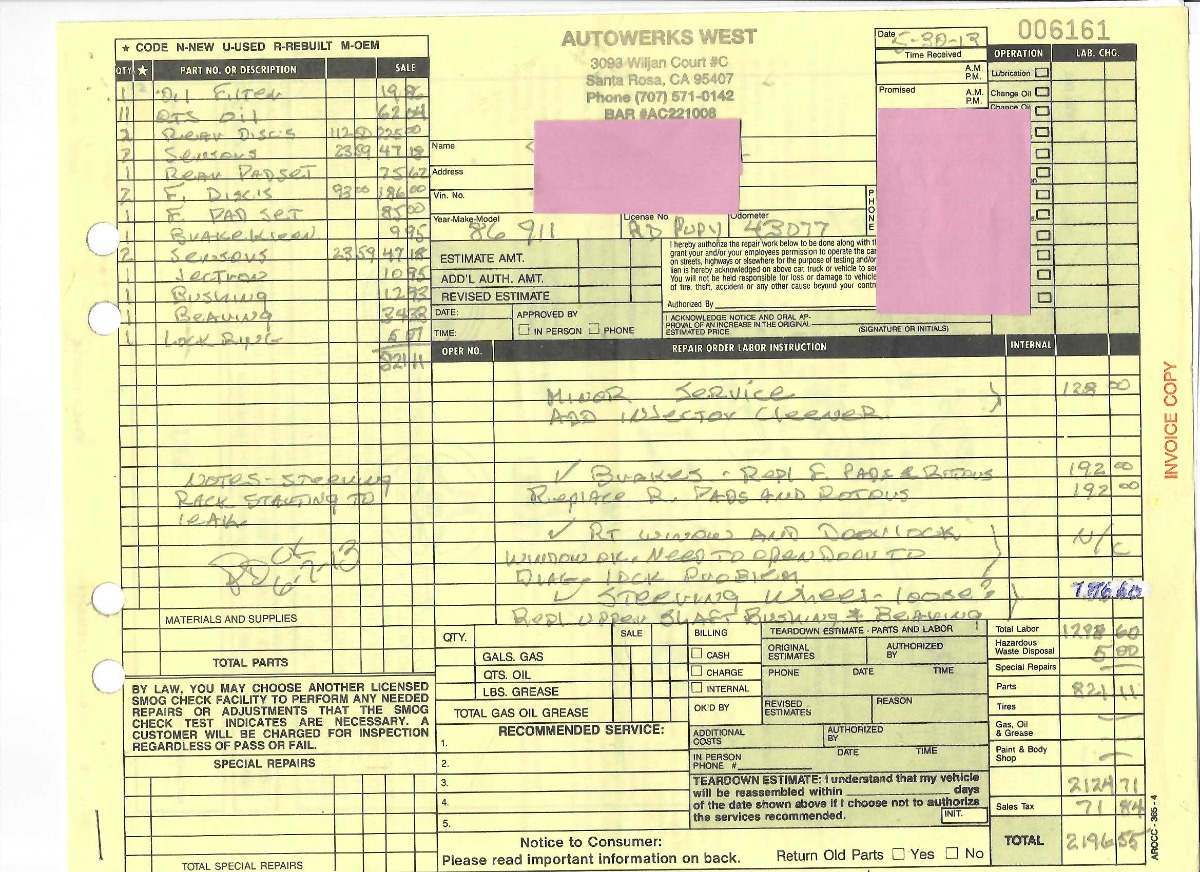 ★ CODE N-NEW U-USED R-REBUILT M-OEM
QTY ★ PART NO. OR DESCRIPTION SALE
1 OIL FILTER 19 86
11 QTS OIL 62 04
2 REAR DISCS 112 50 225 00
2 SENSORS 23 59 47 18
1 REAR PAD SET 75 62
2 F. DISCS 93 00 186 00
1 F. PAD SET 85 00
1 BRAKE KLEEN 9 95
2 SENSORS 23 59 47 18
1 JECTRON 10 95
1 BUSHING 12 93
1 BEARING 34 33
1 LOCK RING
821 11
NOTES - STEERING
RACK STARTING TO
LEAK
MATERIALS AND SUPPLIES
TOTAL PARTS
BY LAW, YOU MAY CHOOSE ANOTHER LICENSED
SMOG CHECK FACILITY TO PERFORM ANY NEEDED
REPAIRS OR ADJUSTMENTS THAT THE SMOG
CHECK TEST INDICATES ARE NECESSARY. A
CUSTOMER WILL BE CHARGED FOR INSPECTION
REGARDLESS OF PASS OR FAIL.
SPECIAL REPAIRS
TOTAL SPECIAL REPAIRS
AUTOWERKS WEST
3093 Wiljan Court #C
Santa Rosa, CA 95407
Phone (707) 571-0142
BAR #AC221008
Name
Address
Vin. No.
Year-Make-Model License No. Odometer
86 911 RD PUPY 43077
PHONE
Date 5-30-13
Time Received
A.M.
P.M.
Promised A.M.
P.M.
006161
OPERATION LAB. CHG.
Lubrication
Change Oil
Change Oil
ESTIMATE AMT.
ADD'L AUTH. AMT.
REVISED ESTIMATE
DATE: APPROVED BY
TIME: IN PERSON PHONE
I hereby authorize the repair work below to be done along with
grant your and/or your employees permission to operate the
on streets, highways or elsewhere for the purpose of testing and/or
lien is hereby acknowledged on above car, truck or vehicle to
You will not be held responsible for loss or damage to
of fire, theft, accident or any other cause beyond your
Authorized By
I ACKNOWLEDGE NOTICE AND ORAL AP-
PROVAL OF AN INCREASE IN THE ORIGINAL
ESTIMATED PRICE. (SIGNATURE OR INITIALS)
OPER NO. REPAIR ORDER LABOR INSTRUCTION INTERNAL
MINOR SERVICE 128 00
ADD INJECTOR CLEANER
✓ BRAKES - REPL F. PADS & ROTORS 192 00
REPLACE R. PADS AND ROTORS 192 00
✓ RT WINDOW AND DOOR LOCK N/C
WINDOW OK, NEED TO OPEN DOOR TO
DIAG. LOCK PROBLEM
✓ STEERING WHEEL - LOOSE?
REPL UPPER SHAFT BUSHING & BEARING
QTY. SALE
GALS. GAS
QTS. OIL
LBS. GREASE
TOTAL GAS OIL GREASE
RECOMMENDED SERVICE:
1.
2.
3.
4.
5.
BILLING
CASH
CHARGE
INTERNAL
OK'D BY
TEARDOWN ESTIMATE - PARTS AND LABOR
ORIGINAL ESTIMATES AUTHORIZED BY
PHONE DATE TIME
REVISED ESTIMATES REASON
ADDITIONAL COSTS AUTHORIZED BY
IN PERSON DATE TIME
PHONE #
TEARDOWN ESTIMATE: I understand that my vehicle
will be reassembled within days
of the date shown above if I choose not to authorize
the services recommended. INIT.
Total Labor 60
Hazardous Waste Disposal 5 00
Special Repairs
Parts 821 11
Tires
Gas, Oil & Grease
Paint & Body Shop
2124 71
Sales Tax 71 84
TOTAL 2196 55
Notice to Consumer:
Please read important information on back.
Return Old Parts Yes No
INVOICE COPY
AROCC - 365 - 4